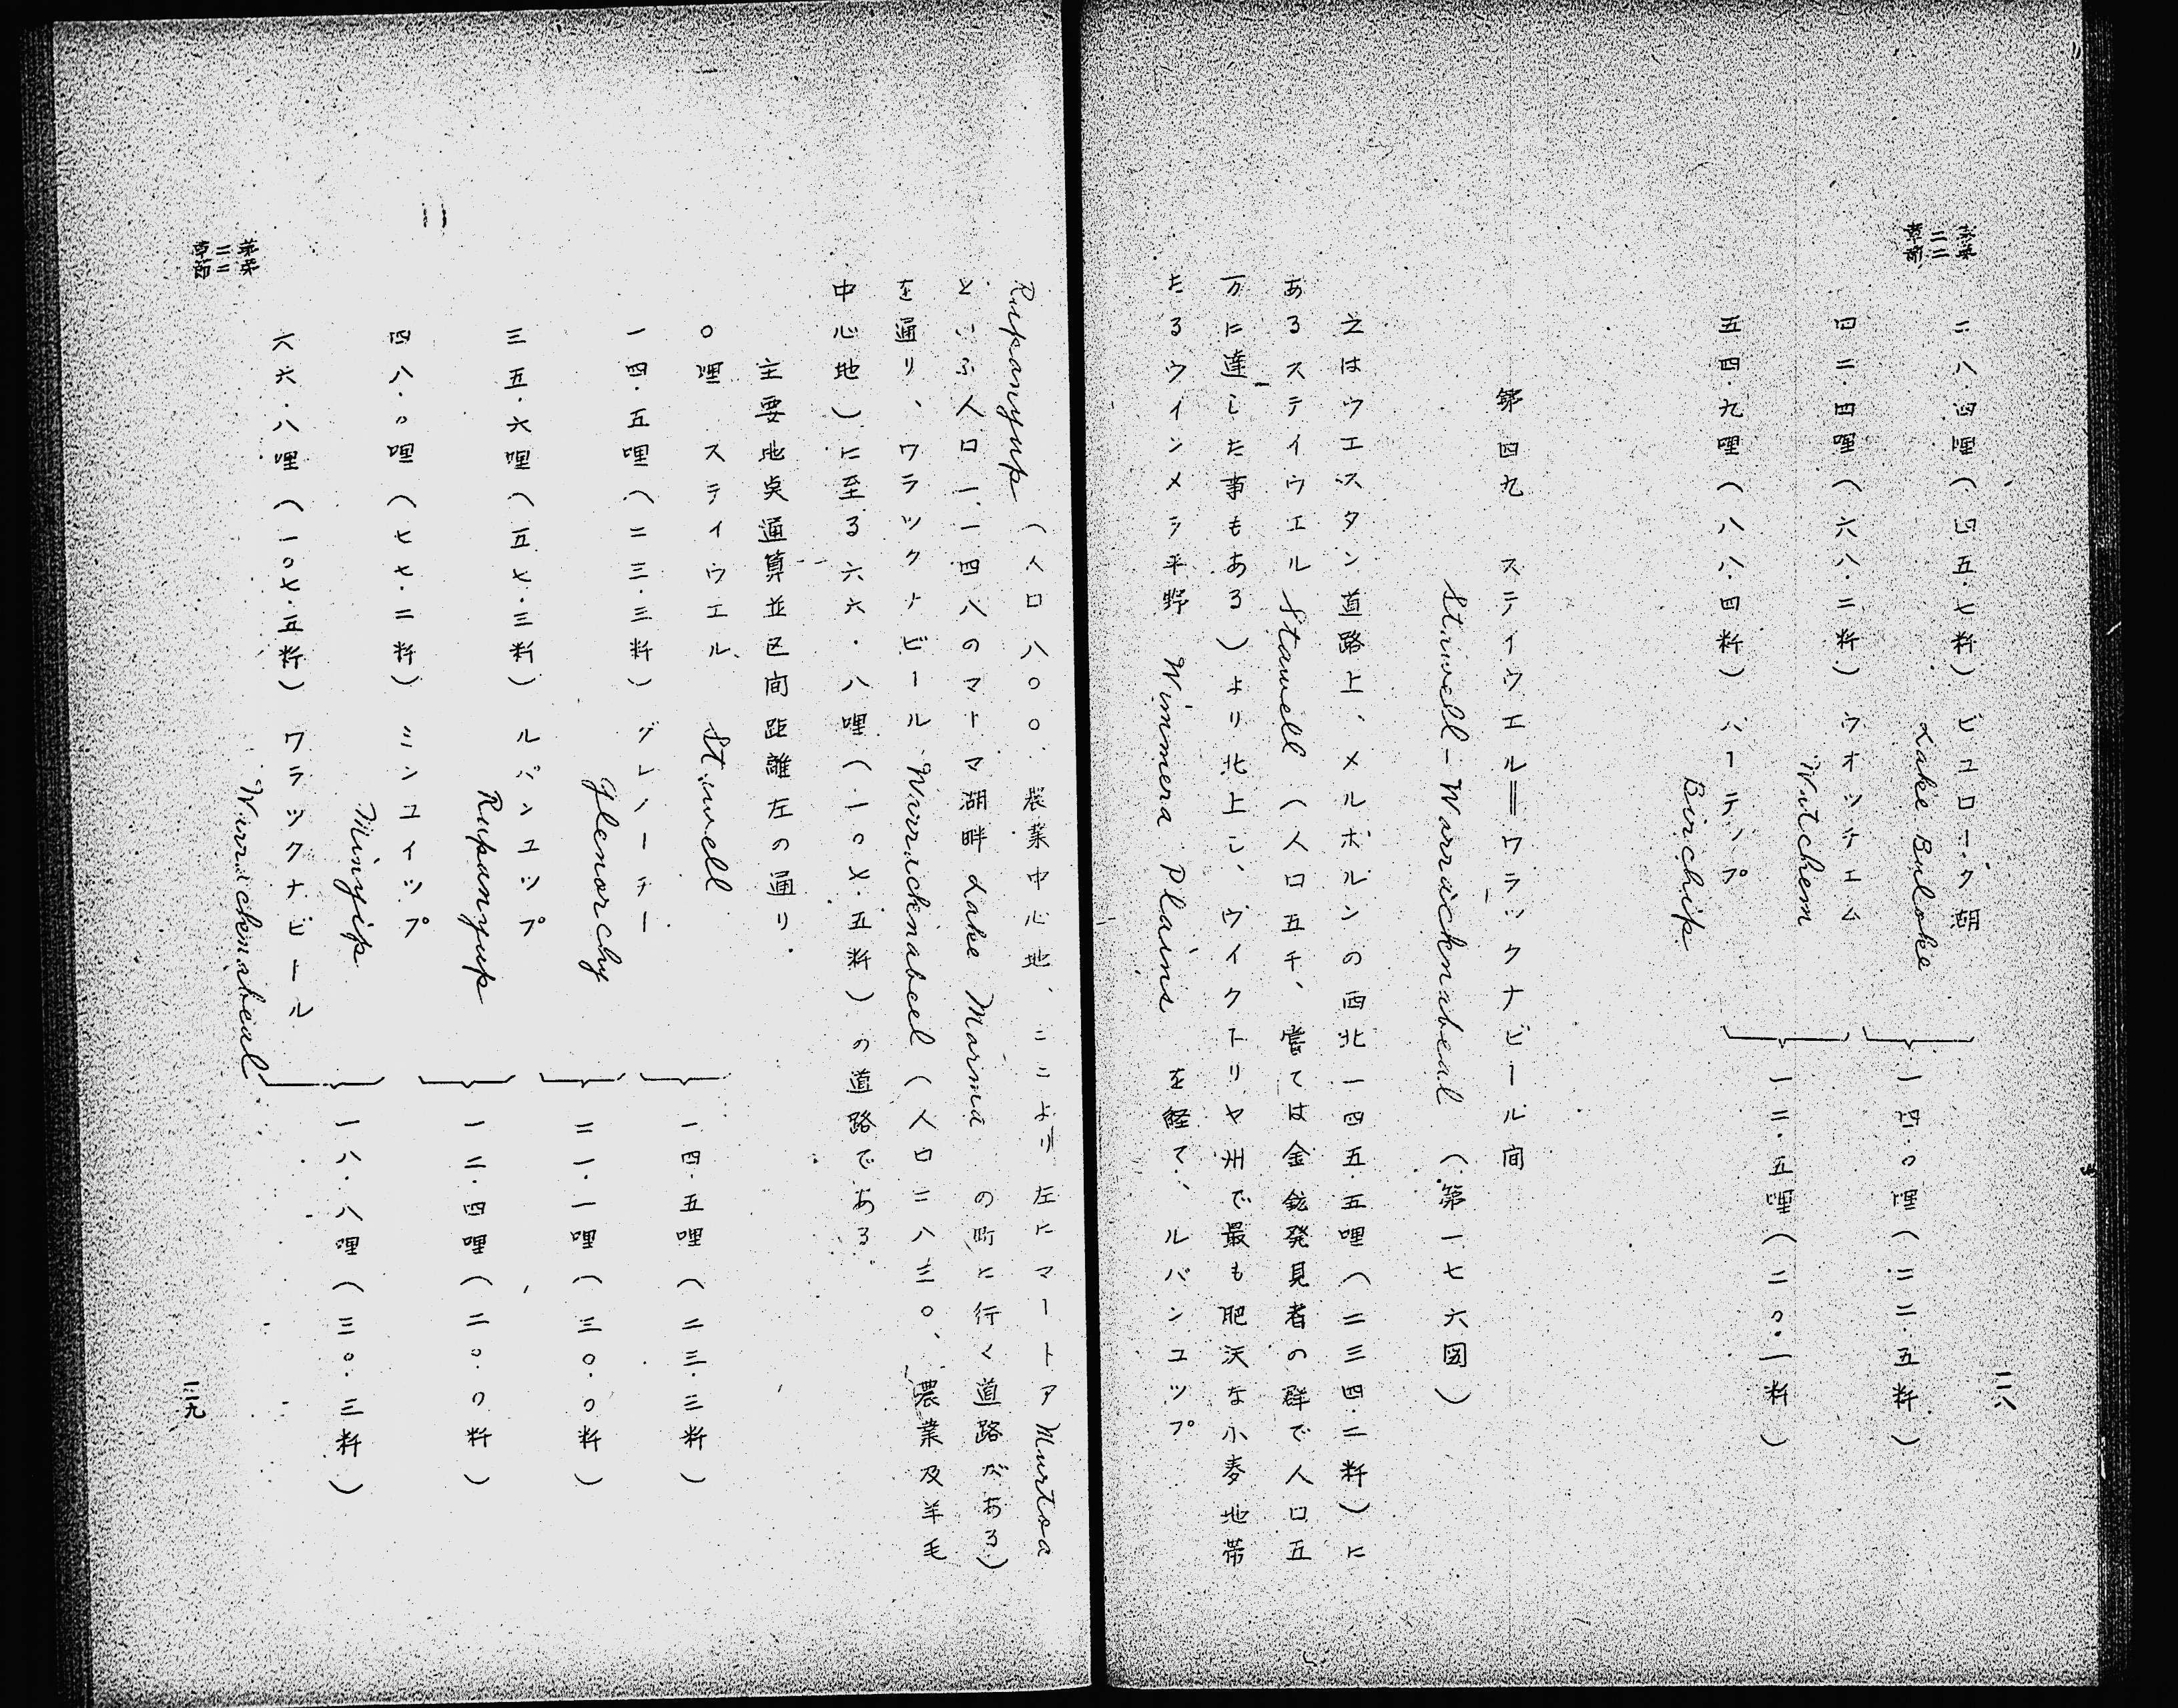 第二章
第二節
二八.四哩(四五.七粁) ビユローク湖
Lake Buloke
四二.四哩(六八.二粁) ウオツチエム
Watchem
五四.九哩(八八.四粁) バーチツプ
Birchip
一四.〇哩(二二.五粁)
一二.五哩(二〇.一粁)
第四九 スティウエル=ワラックナビール間
Stawell-Warracknabeal (第一七六図)
之はウエスタン道路上、メルボルンの西北一四五.五哩(二三四.二粁)に
あるスティウエル Stawell (人口五千、嘗ては金鉱発見者の群で人口五
万に達した事もある)より北上し、ヴイクトリヤ州で最も肥沃な小麦地帯
たるウインメラ平野 Wimmera Plains を経て、ルパンユツプ
一二八
Rupanyup (人口八〇〇.農業中心地.ここより左にマートア Murtoa
といふ人口一、一四八のマトーマ湖畔 Lake Marma の町に行く道路がある)
を通り、ワラツクナビール Warracknabeel (人口二八三〇、農業及羊毛
中心地)に至る六六.八哩(一〇七.五粁)の道路である.
主要地点通算並区間距離左の通り.
〇哩 スティウエル Stawell
一四.五哩(二三.三粁) グレノーチー
Glenorchy
三五.六哩(五七.三粁) ルパンユツプ
Rupanyup
四八.〇哩(七七.二粁) ミンユイツプ
Minyip
六六.八哩(一〇七.五粁) ワラツクナビール
Warracknabeal
一四.五哩(二三.三粁)
二一.一哩(三〇.〇粁)
一二.四哩(二〇.〇粁)
一八.八哩(三〇.三粁)
第二章
第二節
一二九